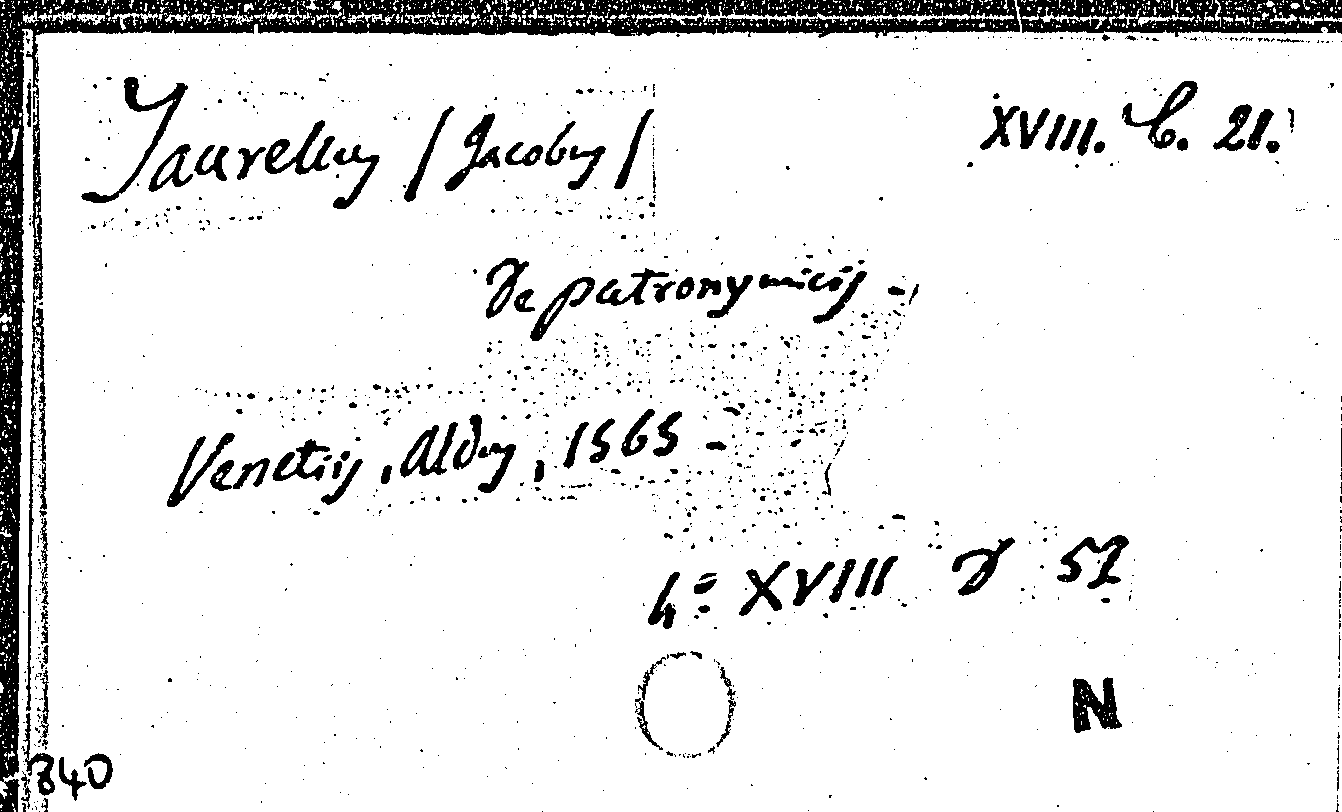 Taurellus (Jacobus) XVIII. C. 21.
De patronymicis -
Venetiis, Aldus, 1565 -
4º XVIII D 52
N
840